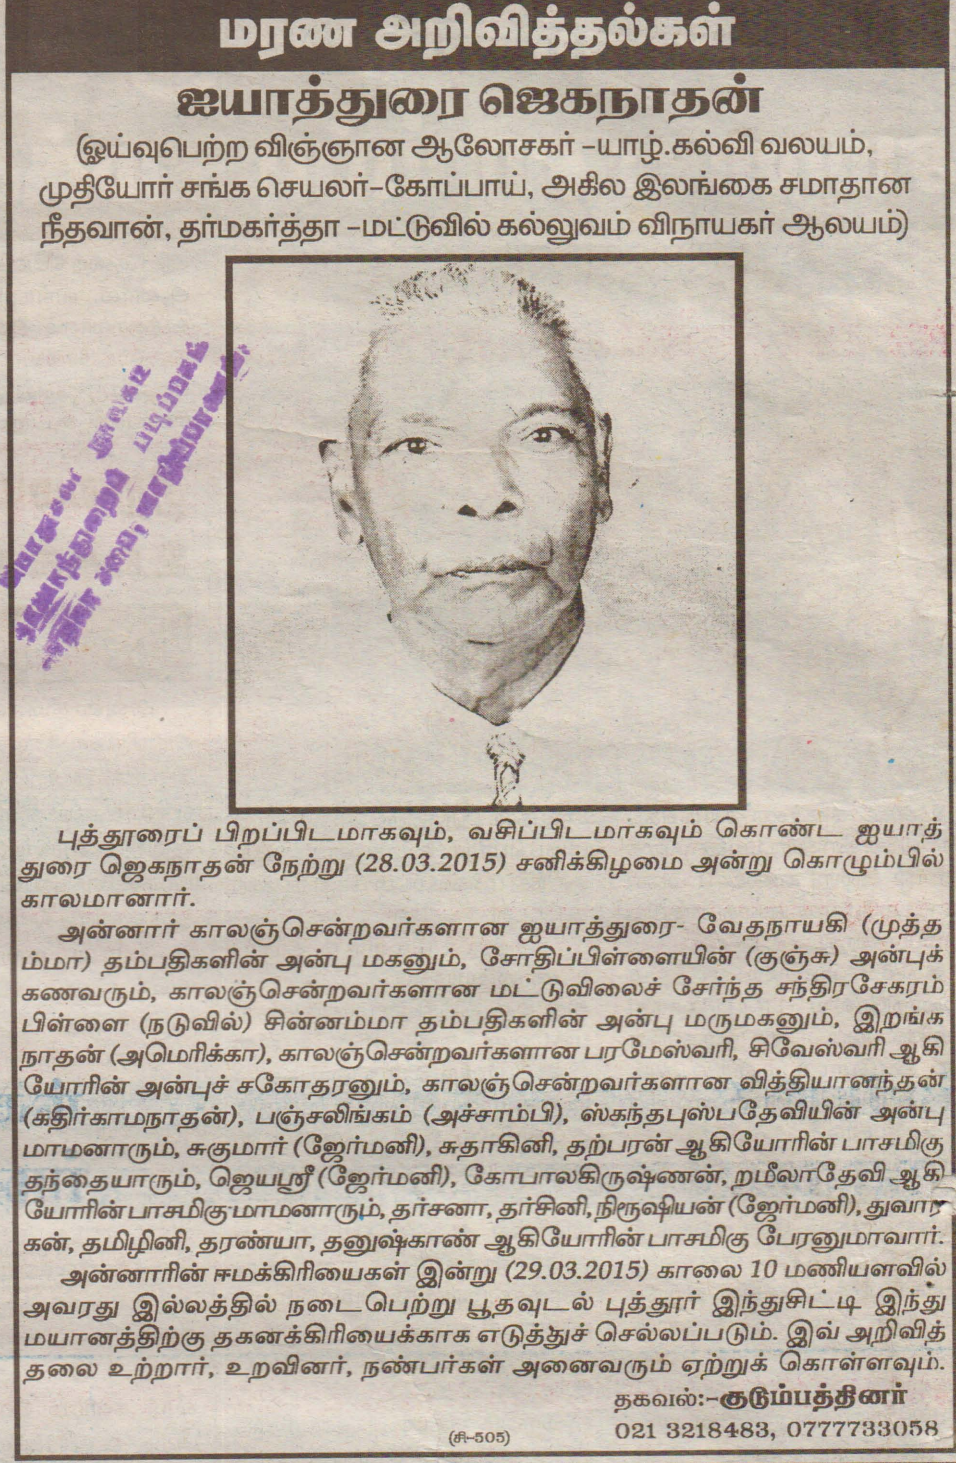 மரண அறிவித்தல்கள்
ஐயாத்துரை ஜெகநாதன்
(ஓய்வுபெற்ற விஞ்ஞான ஆலோசகர் –யாழ்.கல்வி வலயம்,
முதியோர் சங்க செயலர்–கோப்பாய், அகில இலங்கை சமாதான
நீதவான், தர்மகர்த்தா –மட்டுவில் கல்லுவம் விநாயகர் ஆலயம்)
புத்தூரைப் பிறப்பிடமாகவும், வசிப்பிடமாகவும் கொண்ட ஐயாத்
துரை ஜெகநாதன் நேற்று (28.03.2015) சனிக்கிழமை அன்று கொழும்பில்
காலமானார்.
அன்னார் காலஞ்சென்றவர்களான ஐயாத்துரை- வேதநாயகி (முத்த
ம்மா) தம்பதிகளின் அன்பு மகனும், சோதிப்பிள்ளையின் (குஞ்சு) அன்புக்
கணவரும், காலஞ்சென்றவர்களான மட்டுவிலைச் சேர்ந்த சந்திரசேகரம்
பிள்ளை (நடுவில்) சின்னம்மா தம்பதிகளின் அன்பு மருமகனும், இறங்க
நாதன் (அமெரிக்கா), காலஞ்சென்றவர்களான பரமேஸ்வரி, சிவேஸ்வரி ஆகி
யோரின் அன்புச் சகோதரனும், காலஞ்சென்றவர்களான வித்தியானந்தன்
(கதிர்காமநாதன்), பஞ்சலிங்கம் (அச்சாம்பி), ஸ்கந்தபுஸ்பதேவியின் அன்பு
மாமனாரும், சுகுமார் (ஜேர்மனி), சுதாகினி, தற்பரன் ஆகியோரின் பாசமிகு
தந்தையாரும், ஜெயஸ்ரீ (ஜேர்மனி), கோபாலகிருஷ்ணன், றமீலாதேவி ஆகி
யோரின் பாசமிகு மாமனாரும், தர்சனா, தர்சினி, நிரூஷியன் (ஜேர்மனி), துவார
கன், தமிழினி, தரண்யா, தனுஷ்காண் ஆகியோரின் பாசமிகு பேரனுமாவார்.
அன்னாரின் ஈமக்கிரியைகள் இன்று (29.03.2015) காலை 10 மணியளவில்
அவரது இல்லத்தில் நடைபெற்று பூதவுடல் புத்தூர் இந்துசிட்டி இந்து
மயானத்திற்கு தகனக்கிரியைக்காக எடுத்துச் செல்லப்படும். இவ் அறிவித்
தலை உற்றார், உறவினர், நண்பர்கள் அனைவரும் ஏற்றுக் கொள்ளவும்.
தகவல்:–குடும்பத்தினர்
(சி–505)
021 3218483, 0777733058